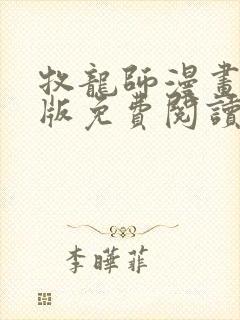 牧龍師漫畫
版免費閱讀
李曄菲